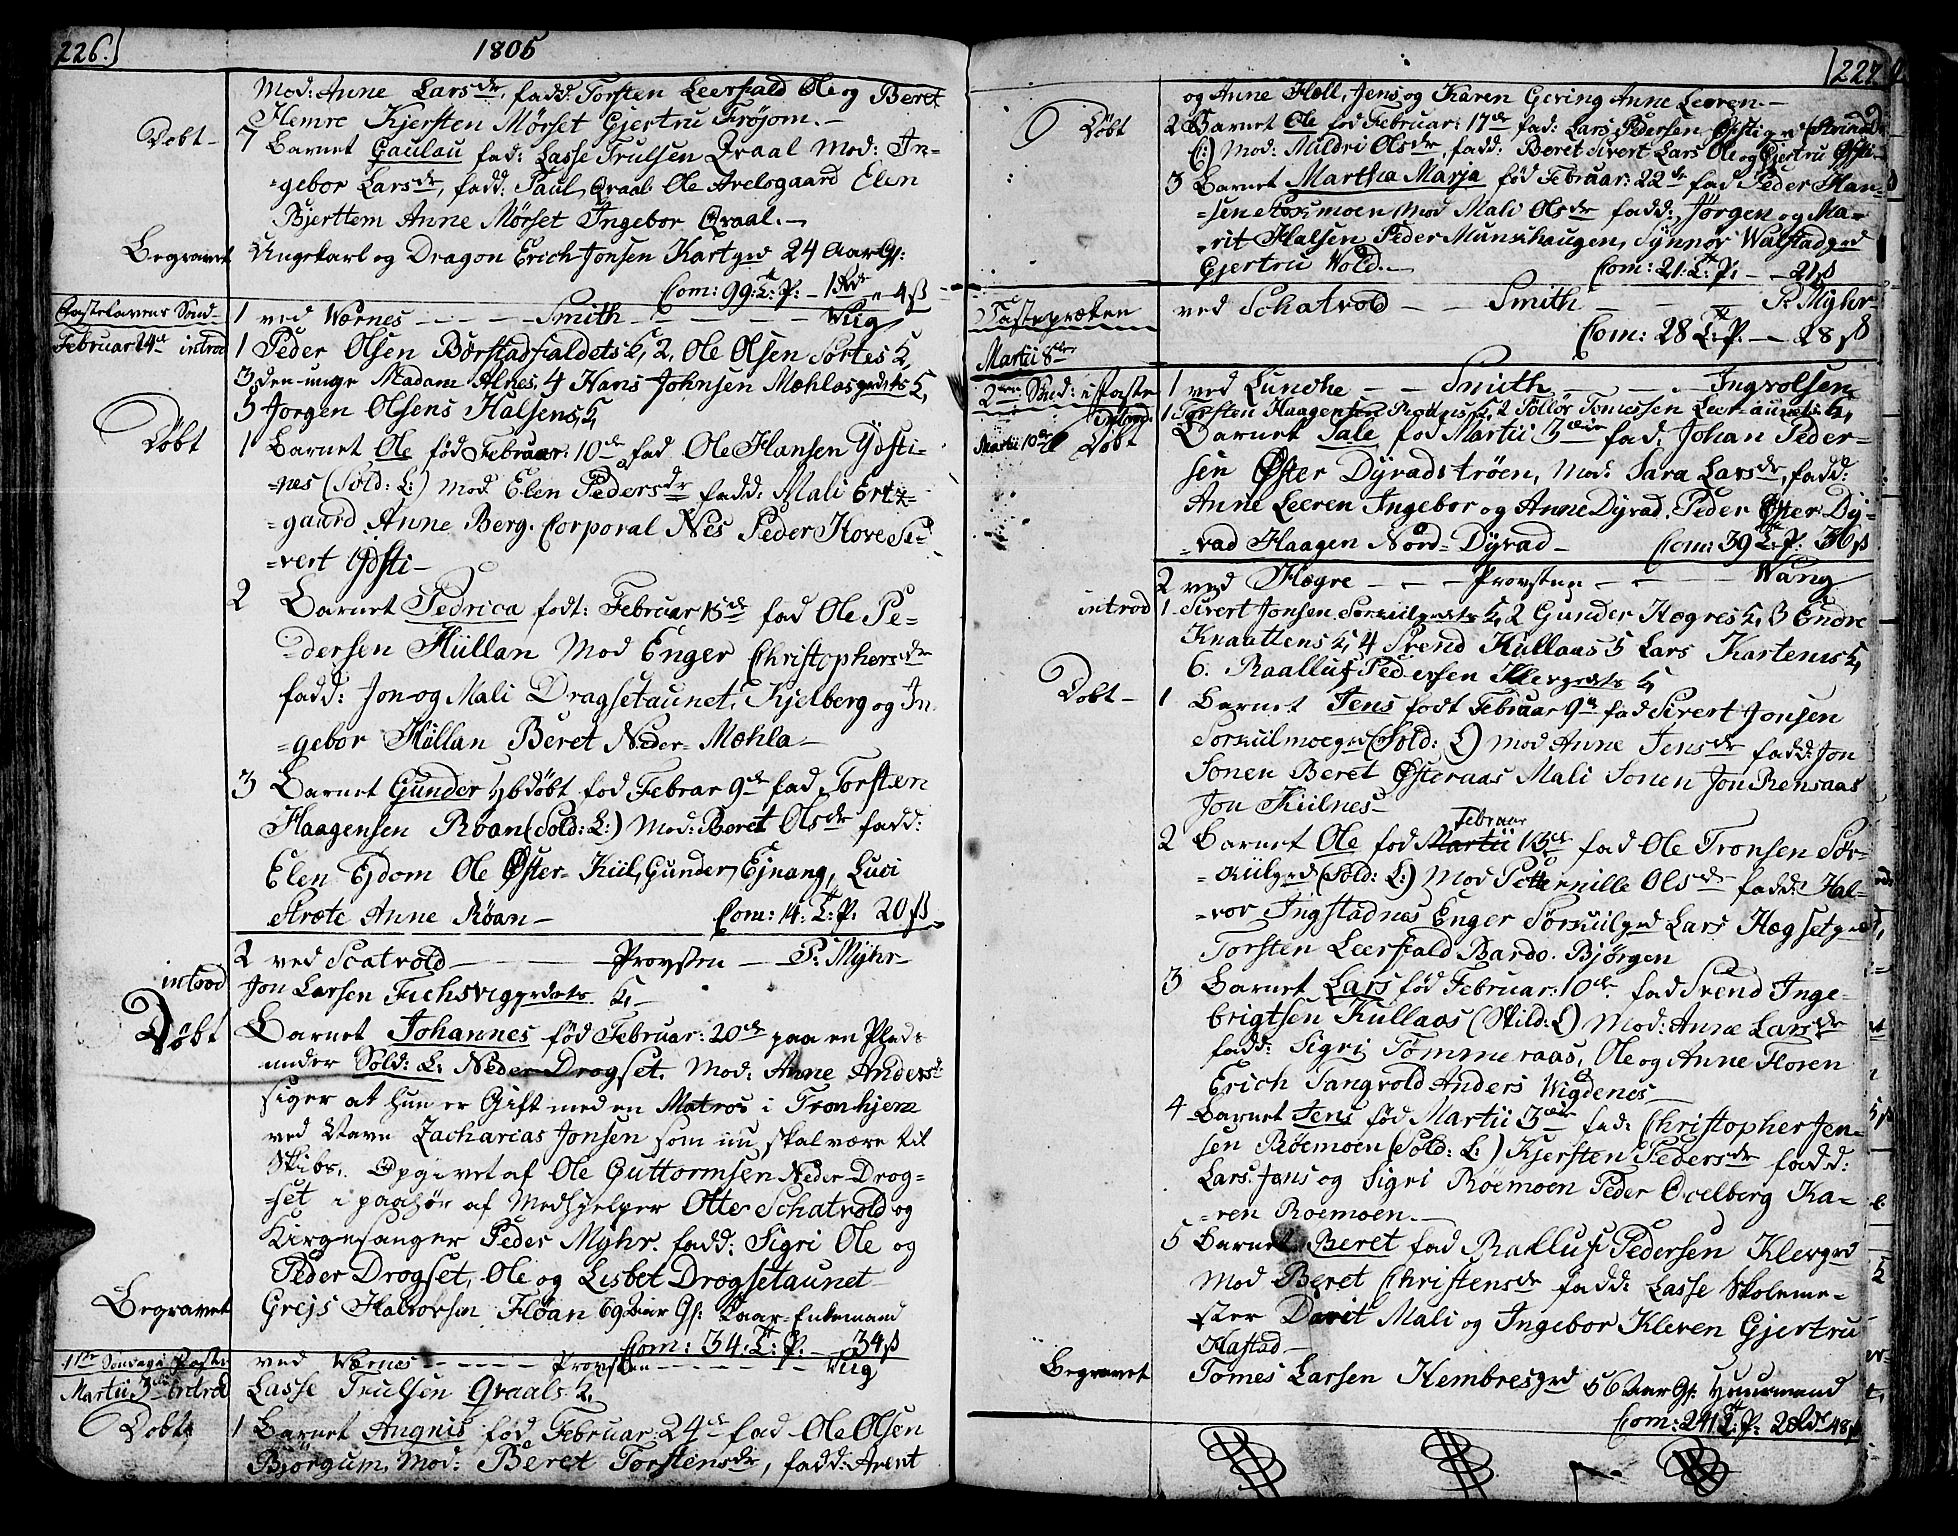 226.)
1805
Mod: Anne Larsdr, fadd: Torsten Leerfald Ole og Beret
Hemre Kjersten Mørset Gjertru Frøjom.-
Døbt -
7 Barnet Gaulau fad: Lasse Trulsen Qraal Mod: In-
=gebor Larsdr, fadd: Paul Qraal Ole Arelsgaard Elen
Bjerttem Anne Mørset Ingebor Qraal.-
Begravet
Ungekarl og Dragon Erich Jonsen Kartgrd 24 Aar G:
Com: 99: T: P: - 1Rdr " 4ß
Fastelavens Sønd-
1 ved Wærnes - - - - Smith - - - - Wiig
Februar 24de introd
1 Peder Olsen Børstadfialdets K, 2, Ole Olsen Sortes K,
3, den unge Madam Alnes, 4 Hans Johnsen Mæhlas grdets K,
5 Jorgen Olsens Halsens K,
Døbt
1 Barnet Ole fød Februar: 10de fad Ole Hansen Ydsti-
=nes (Sold: L:) Mod Elen Pedersdr fadd: Mali Ertz-
=gaard Anne Berg. Corporal Nes Peder Hove Si-
=vert Ydsti -
2 Barnet Pedrica født: Februar 15de fad Ole Pe-
dersen Hüllan Mod Enger Christophersdr
fadd: Jon og Mali Dragsetaunet, Kjelberg og In
=gebor Hüllan Beret Neder- Mæhla -
3 Barnet Gunder hbdøbt fød Februar 9de fad, Torsten
Haagensen Roan (Sold: L:) Mod: Beret Olsdr fadd:
Elen Ejdom Ole Øster- Kiil, Gunder Ejnang, Luci
Stræte Anne Røan -
Com: 14: T: P: 20ß
2 ved Scatvold - - - Provsten - P: Myhr -
introd
Jon Larsen Fuchsvig grdets K, -
Døbt
Barnet Johannes fød Februar: 20de paa en Plads
under Sold: L: Neder Drogset. Mod: Anne Andersd
siger at hun er Gift med en Matros i Tronhjem
ved Navn Zacharias Jonsen som nu skal være til
Skibs. Opgivet af Ole Guttormsen Neder Drog-
=set i paahør af Medhjelper Otte Schatvold og
Kirgesanger Peder Myhr. fadd: Sigri Ole og
Peder Drogset, Ole og Lisbet Drogsetaunet
Begravet
Grejs Halvorsen Floan 69 Aar G: Laar-Enkemand
Com: 34: T: P: - 34ß
1ste Søndag i Faste
ved Wærnes - - - - Provsten - - - - Wiig
Martii 3die introd
Lasse Trulsen Qraals K,
Døbt
1 Barnet Angnis fød Februar: 24de fad Ole Olsen
Bjorgum, Mod: Beret Torstensdr, fadd: Arent
227
og Anne Hall, Jens og Karen Gering Anne Leeren.-
Døbt
2 Barnet Ole fød Februar: 17de fad: Lars Pedersen
(:) Mod: Mildri Olsdr, fadd: Beret Sivert Lars Ole og Gjertru
3 Barnet Martha Marja fød Februar: 22de fad Peder Han-
=sen Mod Mali Olsdr fadd: Jørgen og Ma-
=rit Halsen Peder Munkhaugen, Synnøv Walstadgrd
Gjertru Wold.-
Com: 21: T: P: - - 21ß
Fasteprøken
ved Schatvold - - Smith - - P. Myhr
Com: 28 T: P. - - 28ß
Martii 8de
2den Sønd: i Faste
1 ved Lundhe - - Smith - - - Ingvolsen
introd
1 Torsten Haagensen K, 2 Tollør Tomessen Leer-aunets K,
Martii 10de Døbt
Barnet Sale fød Martii 3die fad, Johan Peder-
sen Øster Dyvadstrøen, Mod: Sara Larsdr, fadd:
Anne Leeren Ingebor og Anne Dyvad, Peder Øster Dy-
=vad Haagen Nord-Dyvad -
Com: 39 T: P: 36ß
2 ved Hegre - - - Provsten - - - Wang
introd
1. Sivert Jonsen K, 2 Gunder Hegres K, 3 Endre
Knaattens K, 4 Svend Kullaas 5 Lars Kartens K,
6. Raalluf Pedersen Klevgrdets K,
Døbt -
1 Barnet Jens født Februar 9de fad Sivert Jonsen
Sorkiilmoegrd (Sold: L) Mod Anne Jensdr fadd: Jon
Sonen Beret Østeraas Mali Sonen Jon Rensaas
Jon Kiilnes -
Februar
2 Barnet Ole fød Martii 13de fad Ole Tronsen Sør-
=kiilgrd (Sold: L:) Mod Petternille Olsdr fadd: Hal-
=vor Ingstadnes Enger Sørkiilgrd Lars Hægsetgrd
Torsten Leerfald Bardo. Bjørgen
3 Barnet Lars fød Februar: 10de fad Svend Inge-
brigtsen Kullaas (Skild: L) Mod: Anne Larsdr
fadd: Sigri Tømmeraas, Ole og Anne Floren
Erich Sangvold Anders Wigdenes -
4 Barnet Jens fød Martii 3die fad: Christopher Jen-
sen Røemoen (Sold: L:) Kjersten Pedersdr fadd:
Lars. Jens og Sigri Røemoen Peder Doelberg Ka-
=ren Roemoen. -
5 Barnet Beret fad Ralluf Pedersen Klevgrd
Mod Beret Christensdr fadd: Lasse Skoleme-
ster Davit Mali og Ingebor Kleven Gjertru
Hastad -
Begravet
Tomes Larsen Hembresgrd 56 Aar G: Huusmand
Com: 241 T: P: 2Rdr 48ß